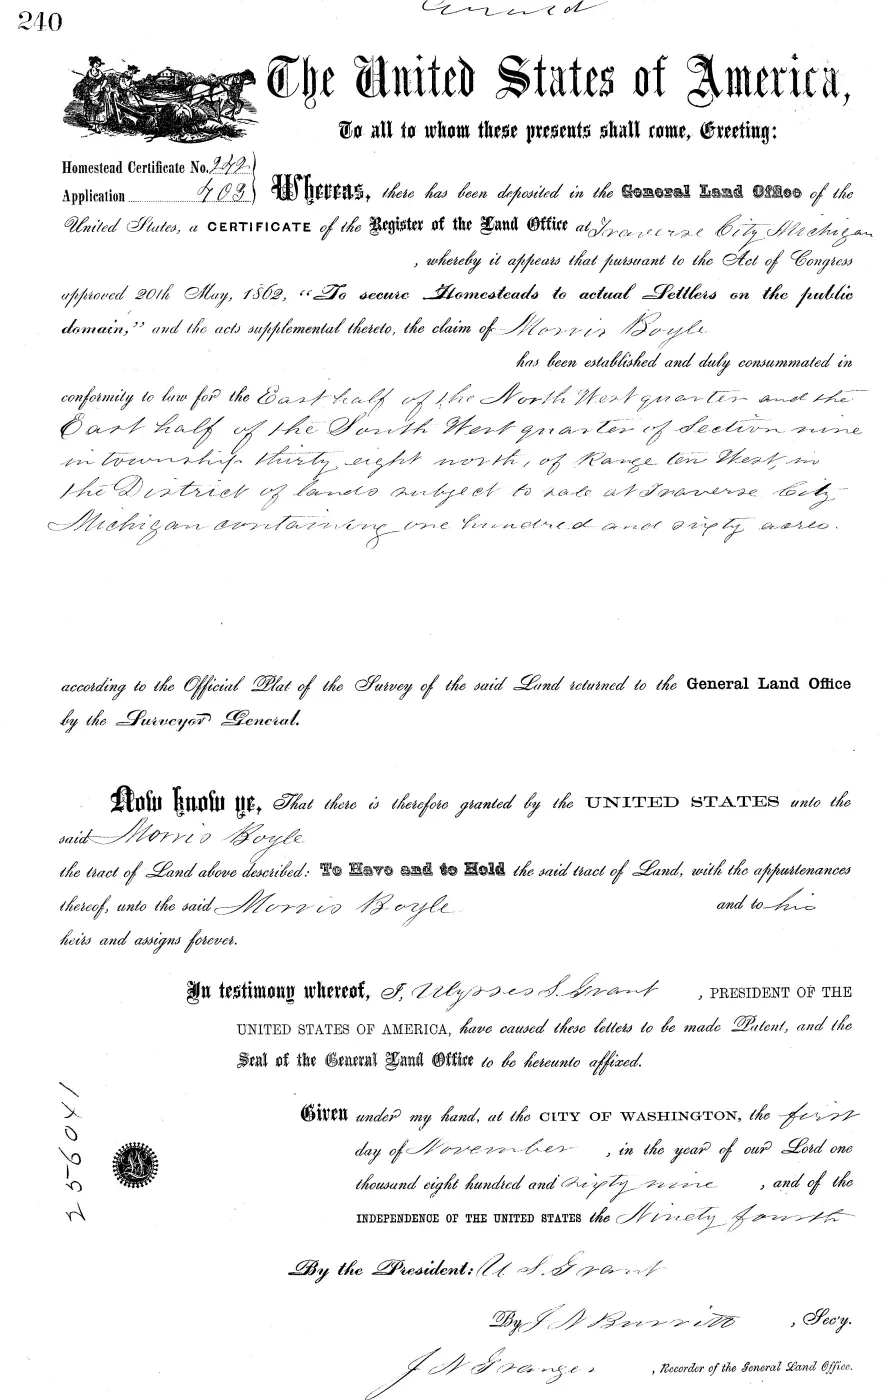 240
The United States of America,
To all to whom these presents shall come, Greeting:
Homestead Certificate No. 242
Application 403
Whereas, there has been deposited in the General Land Office of the
United States, a CERTIFICATE of the Register of the Land Office at Traverse City Michigan
, whereby it appears that pursuant to the Act of Congress
approved 20th May, 1862, "To secure Homesteads to actual Settlers on the public
domain," and the acts supplemental thereto, the claim of Morris Boyle
has been established and duly consummated in
conformity to law for the East half of the North West quarter and the
East half of the South West quarter of Section nine
in township thirty eight north, of Range ten West, in
the District of lands subject to sale at Traverse City
Michigan containing one hundred and sixty acres.
according to the Official Plat of the Survey of the said Land returned to the General Land Office
by the Surveyor General.
Now know ye, That there is therefore granted by the UNITED STATES unto the
said Morris Boyle
the tract of Land above described: To Have and to Hold the said tract of Land, with the appurtenances
thereof, unto the said Morris Boyle and to his
heirs and assigns forever.
In testimony whereof, I, Ulysses S. Grant , PRESIDENT OF THE
UNITED STATES OF AMERICA, have caused these letters to be made Patent, and the
Seal of the General Land Office to be hereunto affixed.
Given under my hand, at the CITY OF WASHINGTON, the first
day of November , in the year of our Lord one
thousand eight hundred and sixty nine , and of the
INDEPENDENCE OF THE UNITED STATES the Ninety fourth
By the President: U S. Grant
By J N Burritt , Sec'y.
J N Granger , Recorder of the General Land Office.
256041